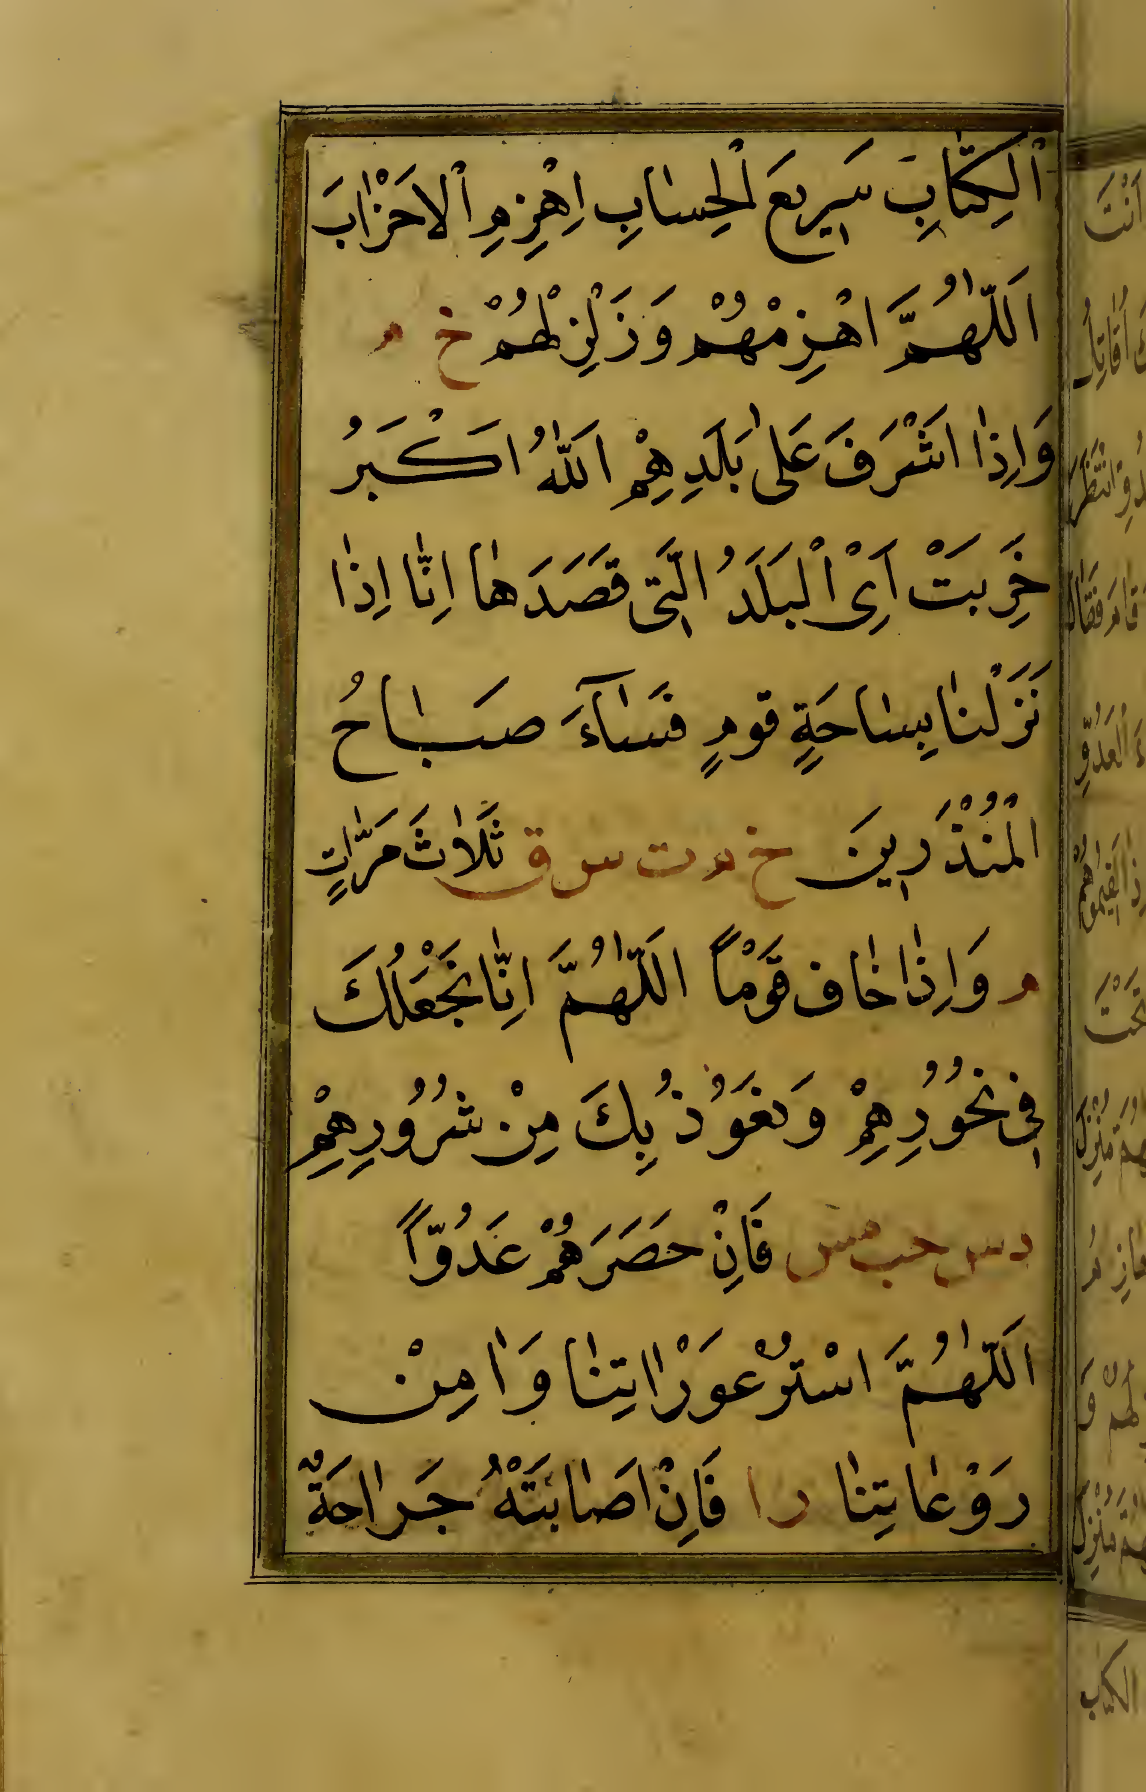 اَلْكِتَابِ سَرِيعَ الْحِسَابِ اِهْزِمِ الْاَحْزَابَ
اَللّٰهُمَّ اهْزِمْهُمْ وَزَلْزِلْهُمْ خ م
وَاِذَا اَشْرَفَ عَلٰى بَلَدِهِمْ اَللّٰهُ اَكْبَرُ
خَرِبَتْ اَىْ الْبَلَدُ الَّتِى قَصَدَهَا اِنَّا اِذَا
نَزَلْنَا بِسَاحَةِ قَومٍ فَسَاۤءَ صَبَاحُ
الْمُنْذَرِينَ خ م ت س ق ثَلَاثَ مَرَّاتٍ
م وَاِذَا خَافَ قَوْمًا اَللّٰهُمَّ اِنَّا نَجْعَلُكَ
فِى نُحُوُرِهِمْ وَنَعُوُذُ بِكَ مِنْ شُرُوُرِهِمْ
د س حب مس فَاِنْ حَصَرَهُمْ عَدُوًّا
اَللّٰهُمَّ اسْتُرْ عَوْرَاتِنَا وَاٰمِنْ
رَوْعَاتِنَا ر ا فَاِنْ اَصَابَتْهُ جَرَاحَةٌ
اَنْتَ
اُقَاتِلُ
انْتَظَرَ
قَامَ فَقَالَ
الْعَدُوِّ
تَحْتَ
مُنْزِلَ
لَهُمْ وَ
مُنْزِلَ
الكتاب